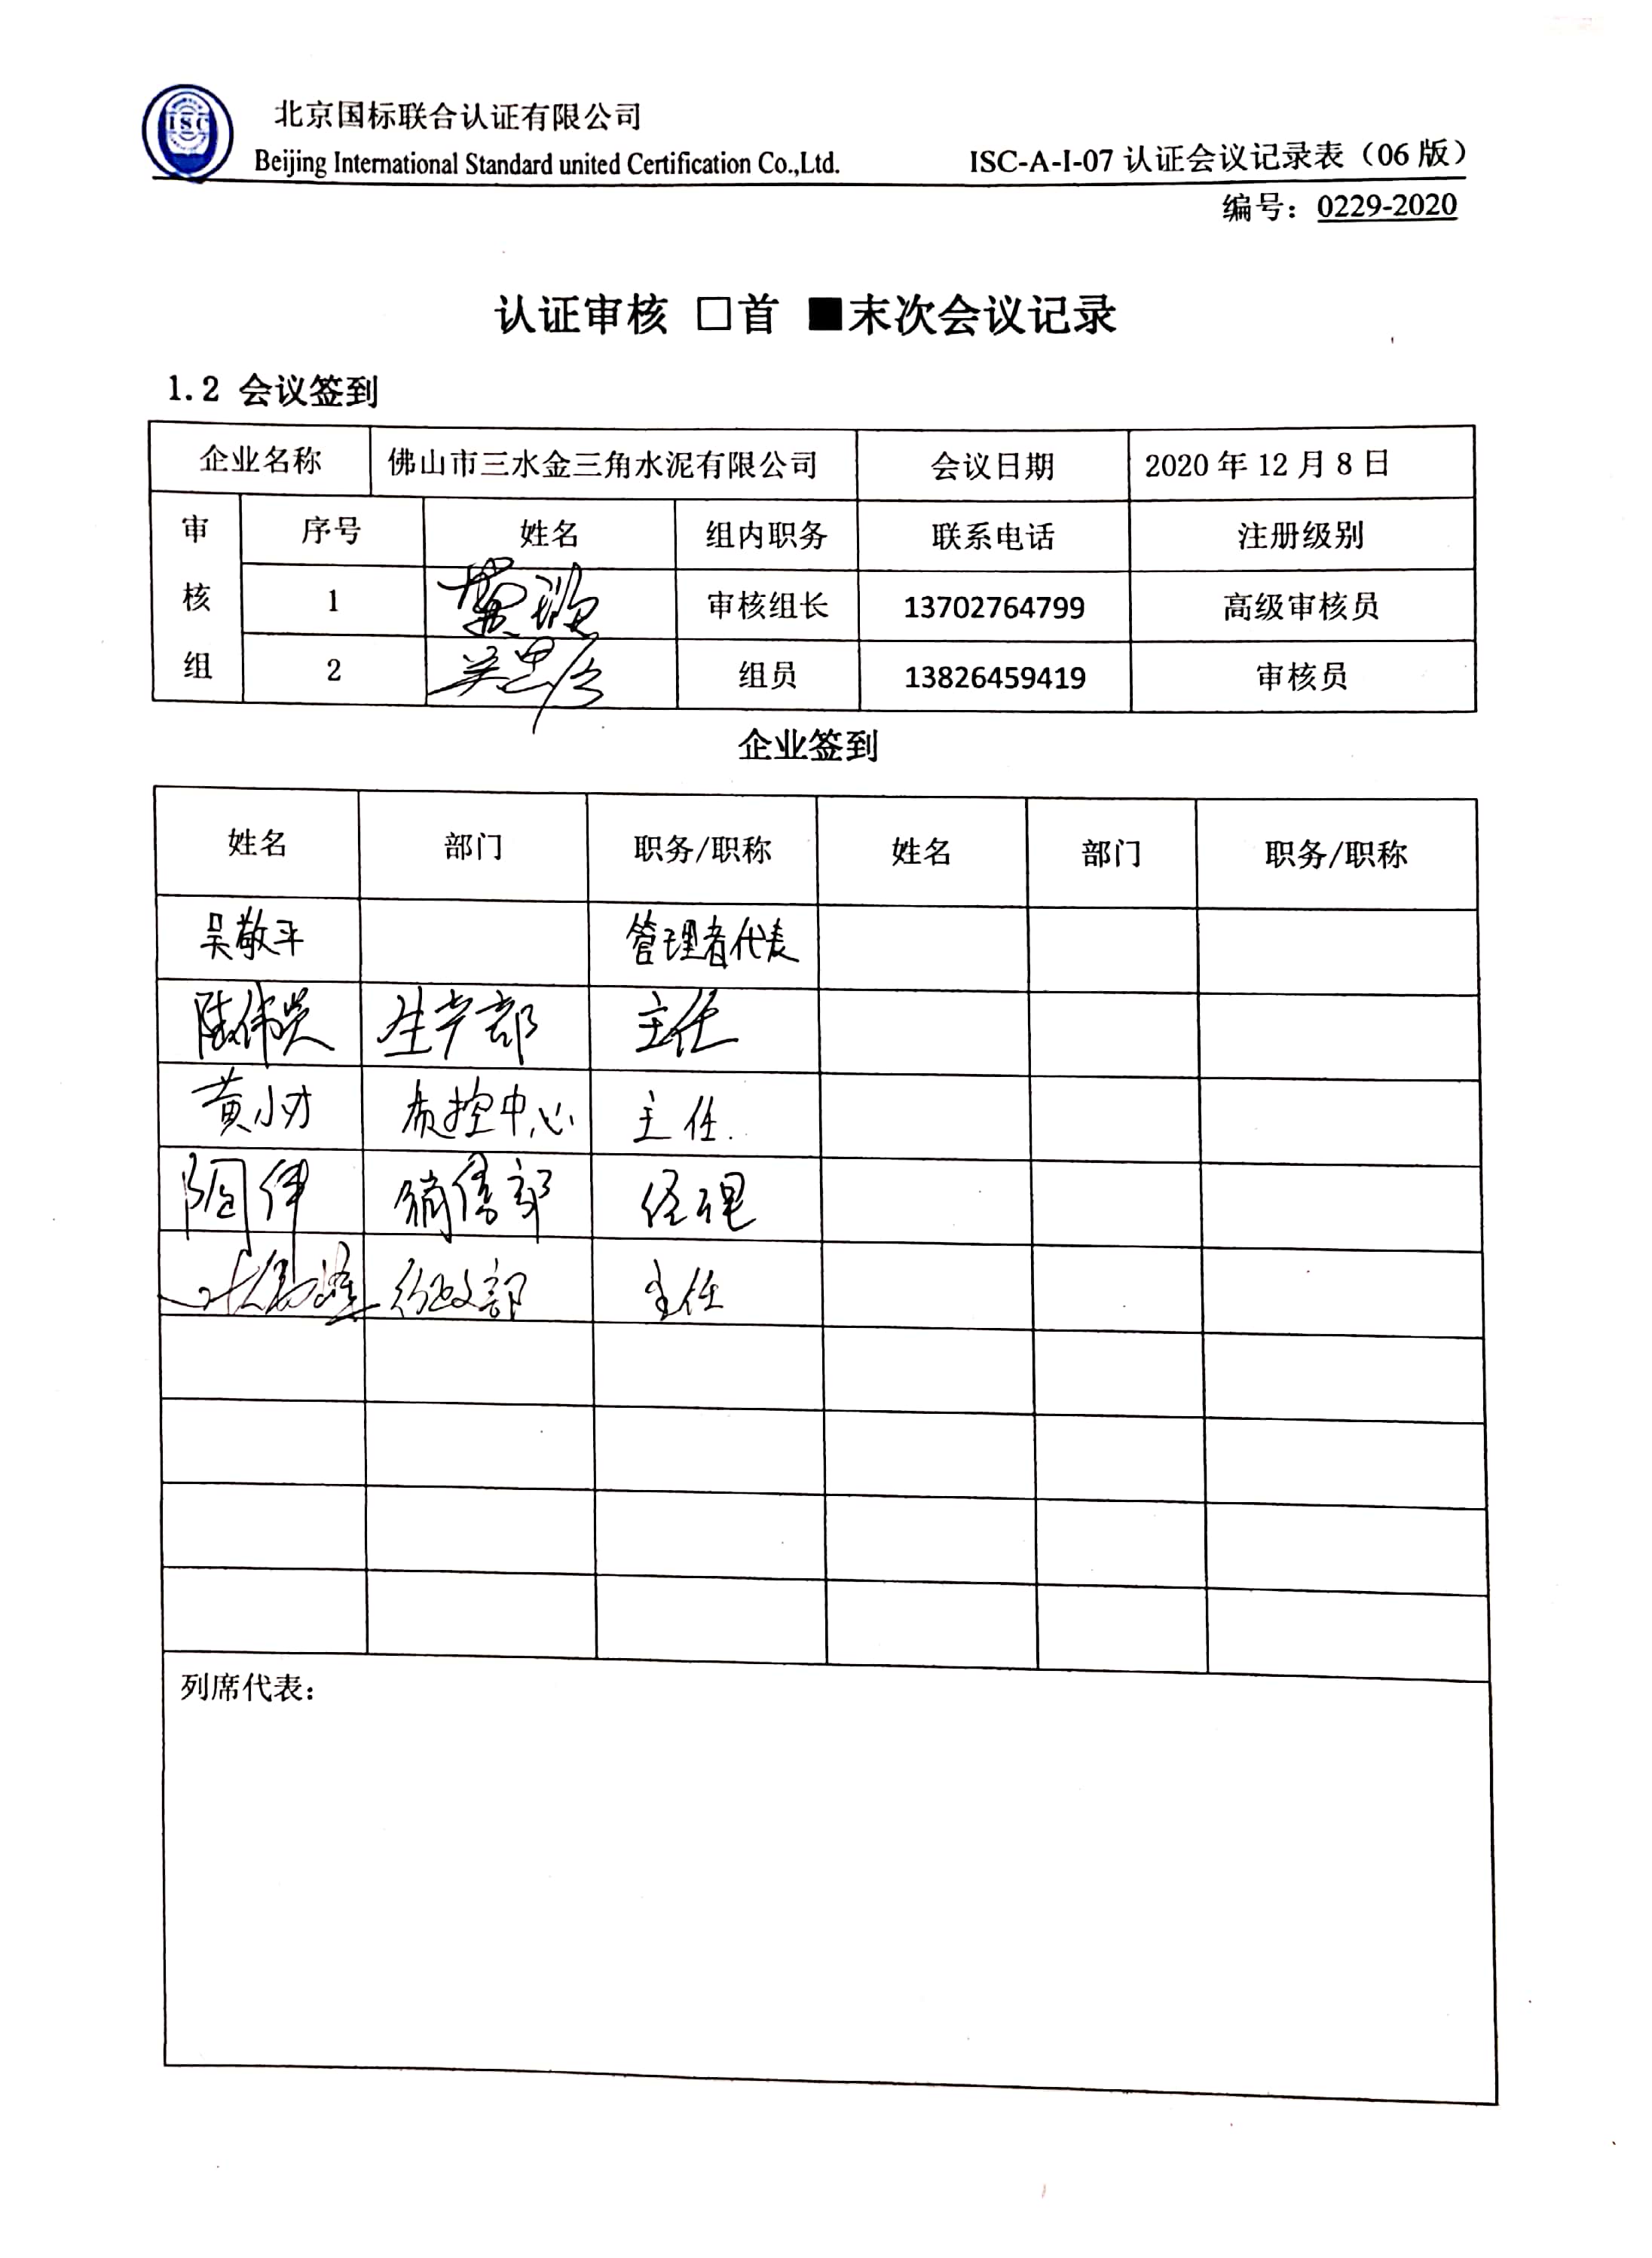 ISC
北京国标联合认证有限公司
Beijing International Standard united Certification Co.,Ltd.
ISC-A-I-07 认证会议记录表（06 版）
编号：0229-2020
认证审核 □首 ■末次会议记录
1.2 会议签到
企业名称 佛山市三水金三角水泥有限公司 会议日期 2020 年 12 月 8 日
审核组 序号 姓名 组内职务 联系电话 注册级别
1 审核组长 13702764799 高级审核员
2 组员 13826459419 审核员
企业签到
姓名 部门 职务/职称 姓名 部门 职务/职称
吴敬平 管理者代表
生产部 主任
黄小才 质控中心 主任
伟 销售部 经理
行政部 主任
列席代表：